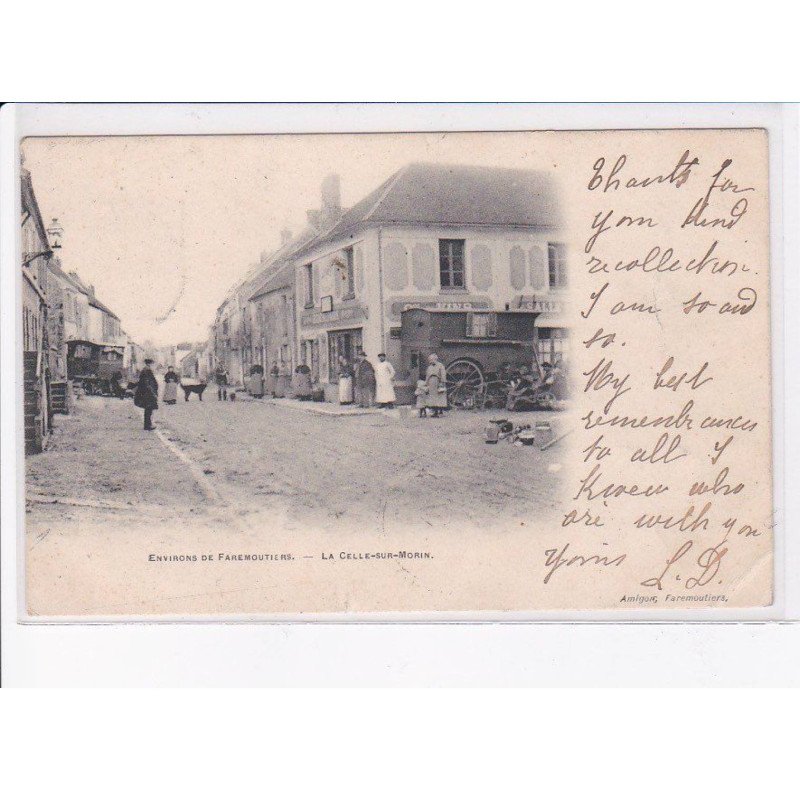 Thanks for
your kind
recollection.
I am so and
so.
My best
remembrances
to all I
Know who
are with you
Yours L. D.
ENVIRONS DE FAREMOUTIERS. — LA CELLE-SUR-MORIN.
Amigon, Faremoutiers.